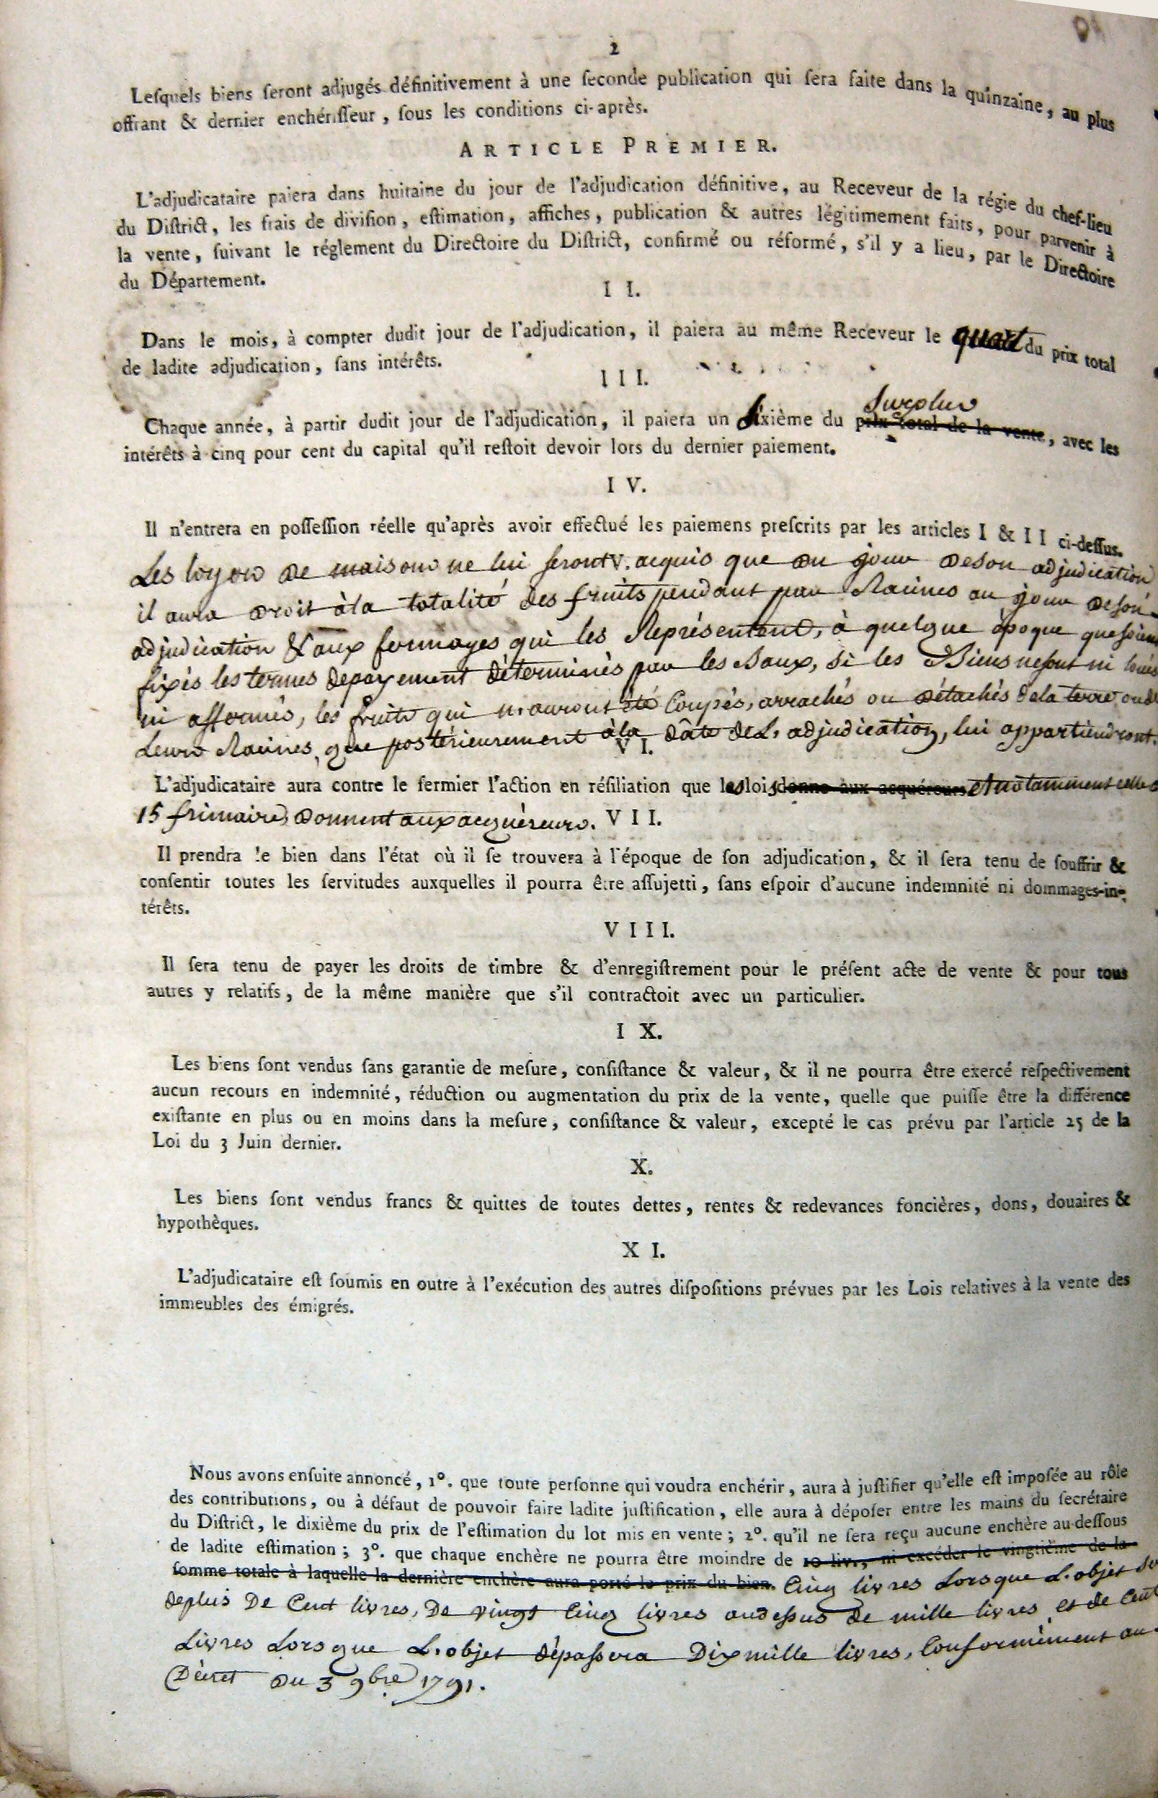 2
Lesquels biens seront adjugés définitivement à une seconde publication qui sera faite dans la quinzaine, au plus
offrant & dernier enchérisseur, sous les conditions ci-après.
ARTICLE PREMIER.
L'adjudicataire paiera dans huitaine du jour de l'adjudication définitive, au Receveur de la régie du chef-lieu
du District, les frais de division, estimation, affiches, publication & autres légitimement faits, pour parvenir à
la vente, suivant le réglement du Directoire du District, confirmé ou réformé, s'il y a lieu, par le Directoire
du Département.
II.
Dans le mois, à compter dudit jour de l'adjudication, il paiera au même Receveur le quart du prix total
de ladite adjudication, sans intérêts.
III.
surplus
Chaque année, à partir dudit jour de l'adjudication, il paiera un sixième du prix total de la vente, avec les
intérêts à cinq pour cent du capital qu'il restoit devoir lors du dernier paiement.
IV.
Il n'entrera en possession réelle qu'après avoir effectué les paiemens prescrits par les articles I & II ci-dessus.
Les loyers de maisons ne lui seront V. acquis que du jour de son adjudication
il aura droit à la totalité des fruits pendant par Racines au jour de son
adjudication & aux fermages qui les Représentent, à quelque époque que soient
fixés les termes de payement déterminés par les Baux, si les Biens ne sont ni loués
ni affermés, les fruits qui n'auront été Coupés, arrachés ou détachés de la terre ou de
Leurs Racines, que postérieurement à la dâte de L'adjudication, lui appartiendront.
VI.
L'adjudicataire aura contre le fermier l'action en résiliation que les lois donne aux acquéreurs et notamment celle
15 frimaire, donnent aux acquéreurs. VII.
Il prendra le bien dans l'état où il se trouvera à l'époque de son adjudication, & il sera tenu de souffrir &
consentir toutes les servitudes auxquelles il pourra être assujetti, sans espoir d'aucune indemnité ni dommages-in-
térêts.
VIII.
Il sera tenu de payer les droits de timbre & d'enregistrement pour le présent acte de vente & pour tous
autres y relatifs, de la même manière que s'il contractoit avec un particulier.
IX.
Les biens sont vendus sans garantie de mesure, consistance & valeur, & il ne pourra être exercé respectivement
aucun recours en indemnité, réduction ou augmentation du prix de la vente, quelle que puisse être la différence
existante en plus ou en moins dans la mesure, consistance & valeur, excepté le cas prévu par l'article 25 de la
Loi du 3 Juin dernier.
X.
Les biens sont vendus francs & quittes de toutes dettes, rentes & redevances foncières, dons, douaires &
hypothèques.
XI.
L'adjudicataire est soumis en outre à l'exécution des autres dispositions prévues par les Lois relatives à la vente des
immeubles des émigrés.
Nous avons ensuite annoncé, 1°. que toute personne qui voudra enchérir, aura à justifier qu'elle est imposée au rôle
des contributions, ou à défaut de pouvoir faire ladite justification, elle aura à déposer entre les mains du secrétaire
du District, le dixième du prix de l'estimation du lot mis en vente; 2°. qu'il ne sera reçu aucune enchère au-dessous
de ladite estimation; 3°. que chaque enchère ne pourra être moindre de 10 liv., ni excéder le vingtième de la
somme totale à laquelle la dernière enchère aura porté le prix du bien. Cinq livres Lorsque L'objet
de plus De Cent livres, De vingt Cinq livres audessus de mille livres et de Cent
Livres Lorsque L'objet dépassera Dix mille livres, Conformément au
Décret du 3 9bre 1791.